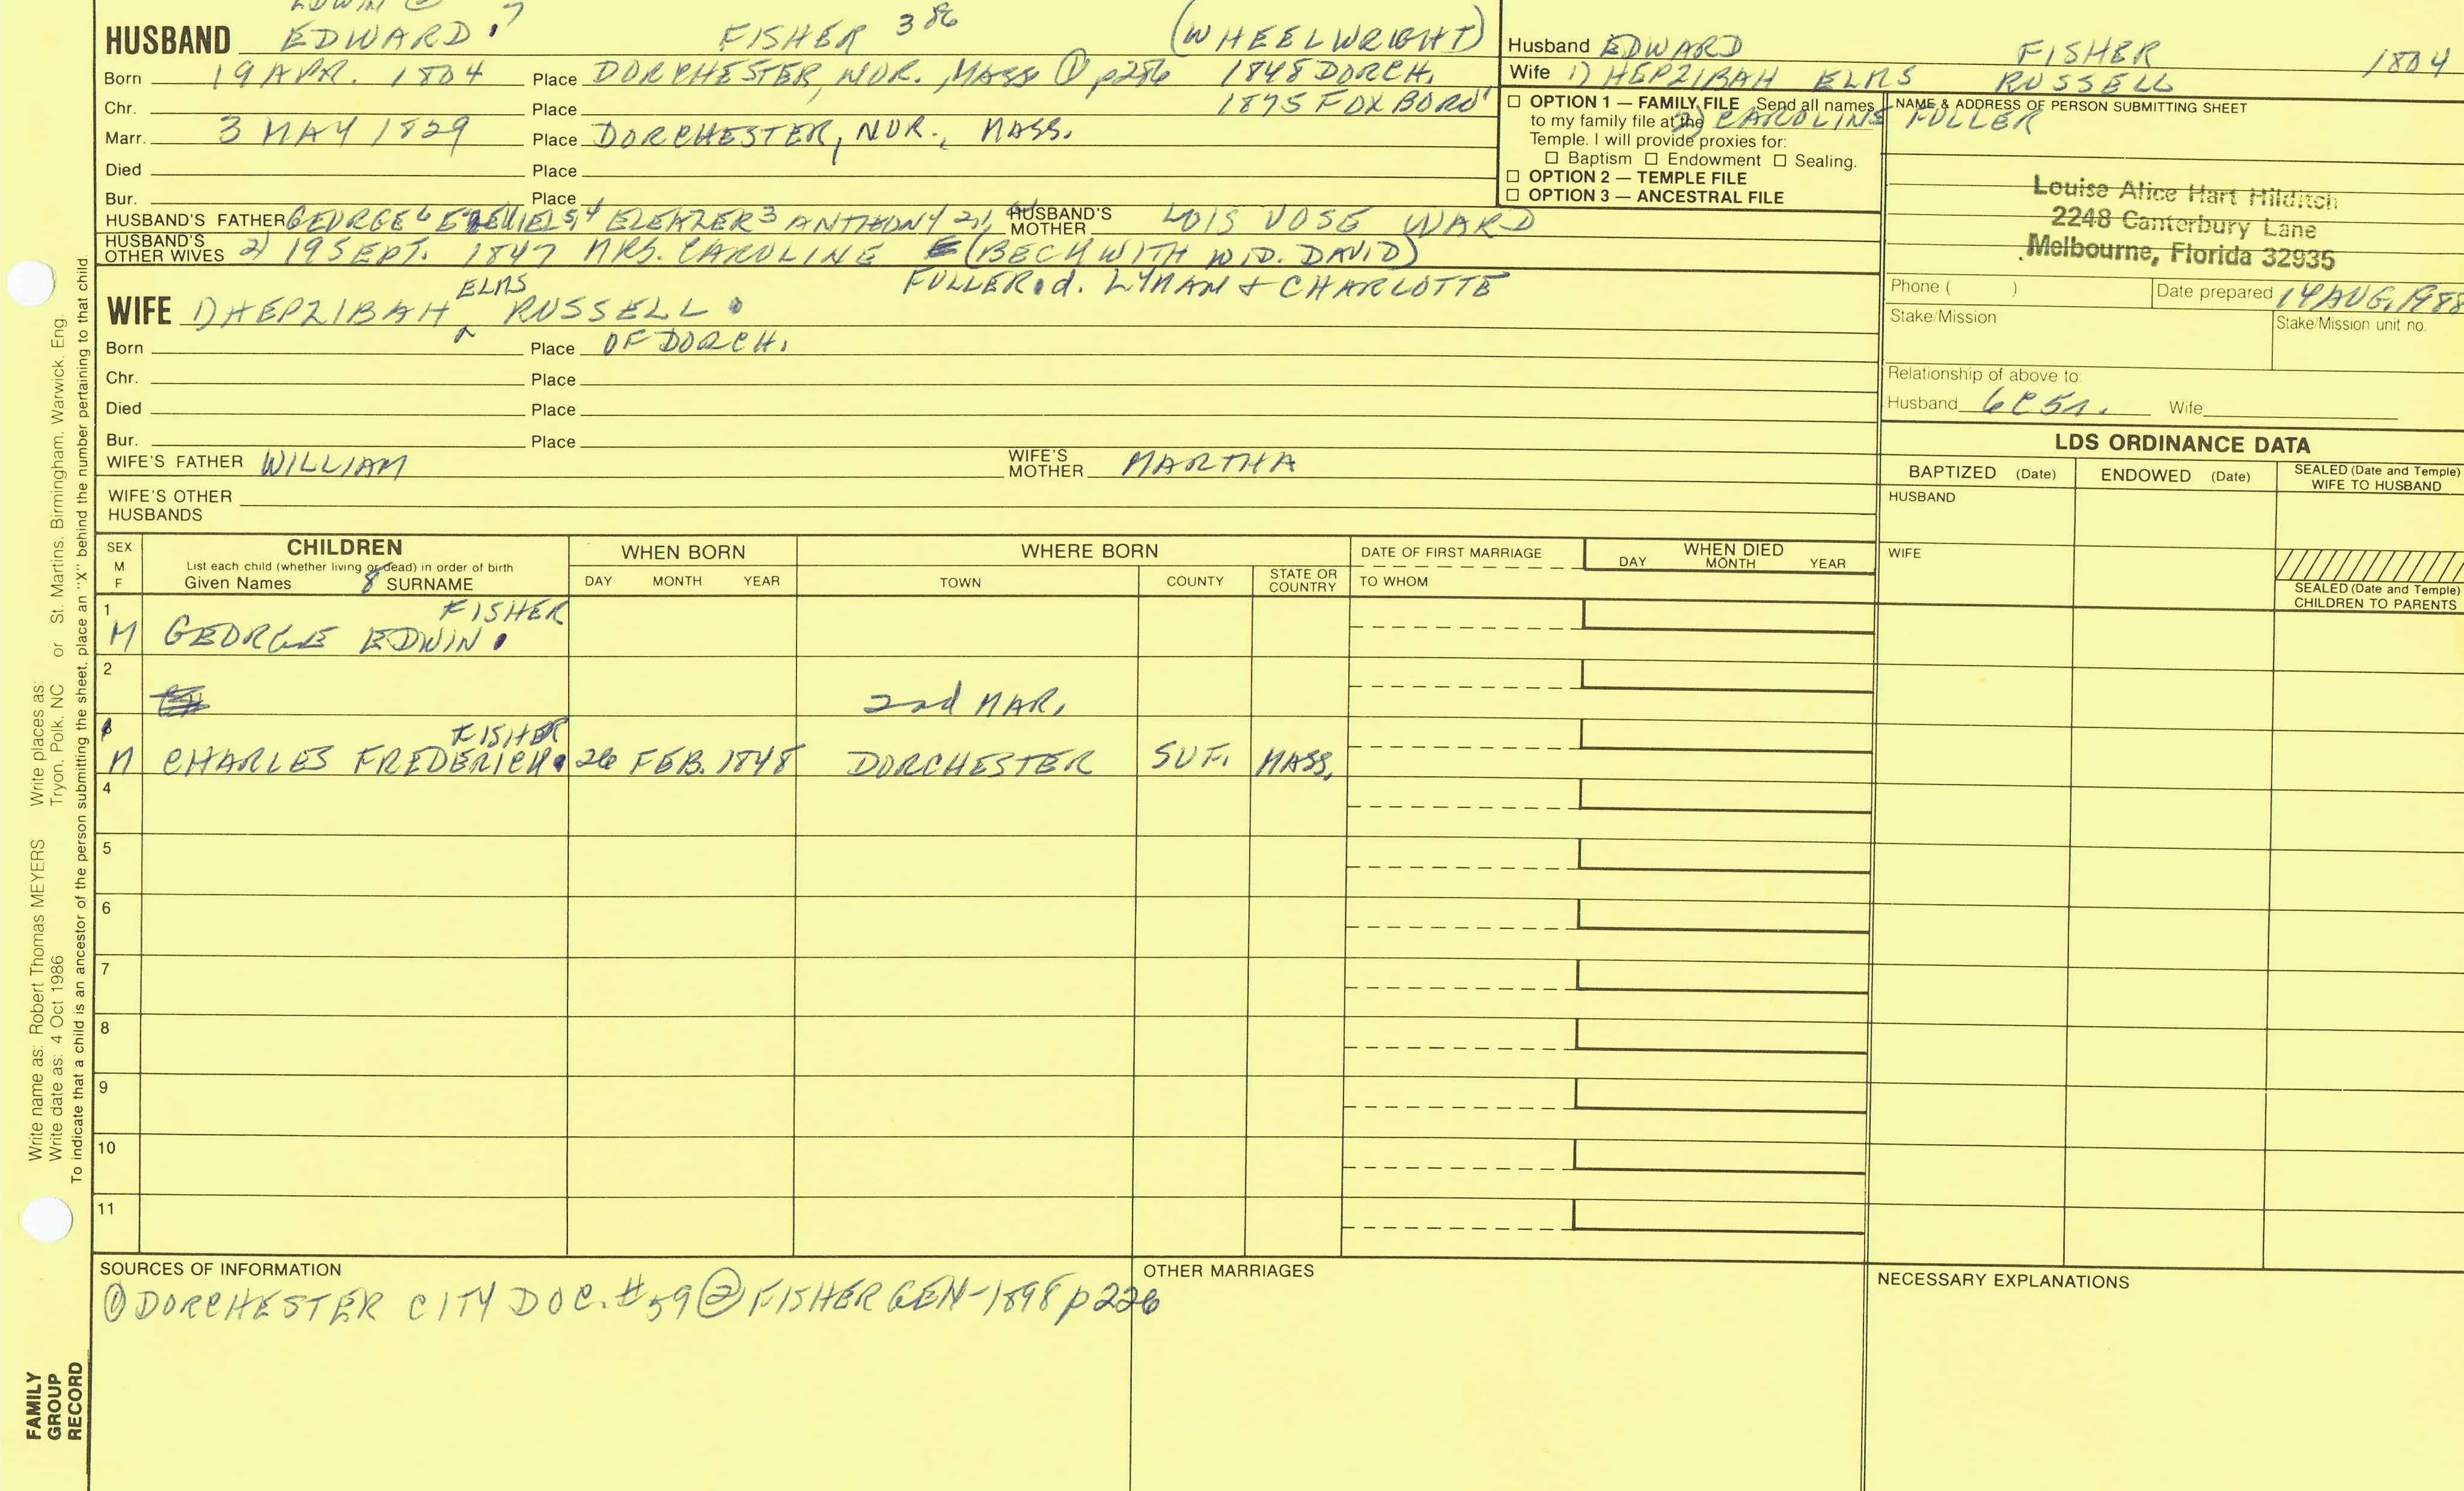 EDWIN
HUSBAND EDWARD 7 FISHER 386 (WHEELWRIGHT)
Born 19 APR. 1804 Place DORCHESTER, NOR., MASS ① p286 1848 DORCH.
Chr. Place 1875 FOXBORO'
Marr. 3 MAY 1829 Place DORCHESTER, NOR., MASS.
Died Place
Bur. Place
HUSBAND'S FATHER GEORGE 6 ELEAZER 3 ANTHONY 2,1 HUSBAND'S MOTHER LOIS VOSE WARD
HUSBAND'S OTHER WIVES 2) 19 SEPT. 1847 MRS. CAROLINE (BECKWITH WID. DAVID)
FULLER d. LYMAN & CHARLOTTE
ELMS
WIFE 1) HEPZIBAH ^ RUSSELL
Born Place OF DORCH.
Chr. Place
Died Place
Bur. Place
WIFE'S FATHER WILLIAM WIFE'S MOTHER MARTHA
WIFE'S OTHER HUSBANDS
Husband EDWARD FISHER 1804
Wife 1) HEPZIBAH ELMS RUSSELL
2) CAROLINE FULLER
☐ OPTION 1 — FAMILY FILE Send all names
to my family file at the
Temple. I will provide proxies for:
☐ Baptism ☐ Endowment ☐ Sealing.
☐ OPTION 2 — TEMPLE FILE
☐ OPTION 3 — ANCESTRAL FILE
NAME & ADDRESS OF PERSON SUBMITTING SHEET
Louise Alice Hart Hilditch
2248 Canterbury Lane
Melbourne, Florida 32935
Phone ( ) Date prepared 14 AUG. 1988
Stake/Mission Stake/Mission unit no.
Relationship of above to:
Husband 6C5R. Wife
LDS ORDINANCE DATA
BAPTIZED (Date) ENDOWED (Date) SEALED (Date and Temple) WIFE TO HUSBAND
HUSBAND
WIFE
SEALED (Date and Temple)
CHILDREN TO PARENTS
SEX M F CHILDREN
List each child (whether living or dead) in order of birth
Given Names 8 SURNAME
WHEN BORN DAY MONTH YEAR
WHERE BORN TOWN COUNTY STATE OR COUNTRY
DATE OF FIRST MARRIAGE
TO WHOM
WHEN DIED
DAY MONTH YEAR
1 FISHER
M GEORGE EDWIN
2
2nd MAR.
FISHER
M CHARLES FREDERICK 26 FEB. 1848 DORCHESTER SUF. MASS.
4
5
6
7
8
9
10
11
SOURCES OF INFORMATION
① DORCHESTER CITY DOC. #59 ② FISHER GEN-1898 p226
OTHER MARRIAGES
NECESSARY EXPLANATIONS
Write name as: Robert Thomas MEYERS Write places as: Tryon, Polk, NC or St. Martins, Birmingham, Warwick, Eng.
Write date as: 4 Oct 1986
To indicate that a child is an ancestor of the person submitting the sheet, place an "X" behind the number pertaining to that child
FAMILY
GROUP
RECORD